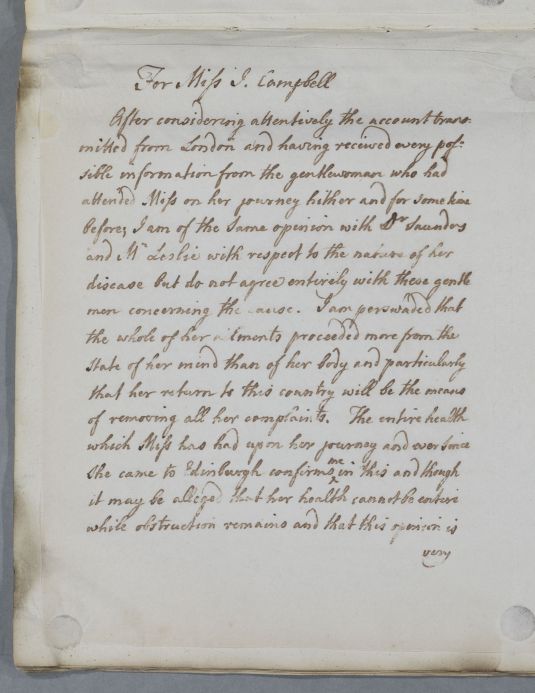 For Miss J. Campbell
After considering attentively the account trans-
mitted from London and having received every pos-
sible information from the gentlewoman who had
attended Miss on her journey hither and for some time
before; I am of the same opinion with Dr Saunders
and Mr Leslie with respect to the nature of her
disease but do not agree entirely with these gentle
men concerning the cause. I am perswaded that
the whole of her ailments proceeded more from the
state of her mind than of her body and particularly
that her return to this country will be the means
of removing all her complaints. The entire health
which Miss has had upon her journey and ever since
she came to Edinburgh confirms me in this and though
it may be alleged that her health cannot be entire
while obstruction remains and that this opinion is
very